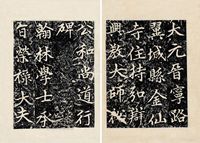 大元晉寧路
翼城縣金仙
寺住持弘辯
興教大師裕
公和尚道行
碑
翰林學士承
旨榮祿大夫